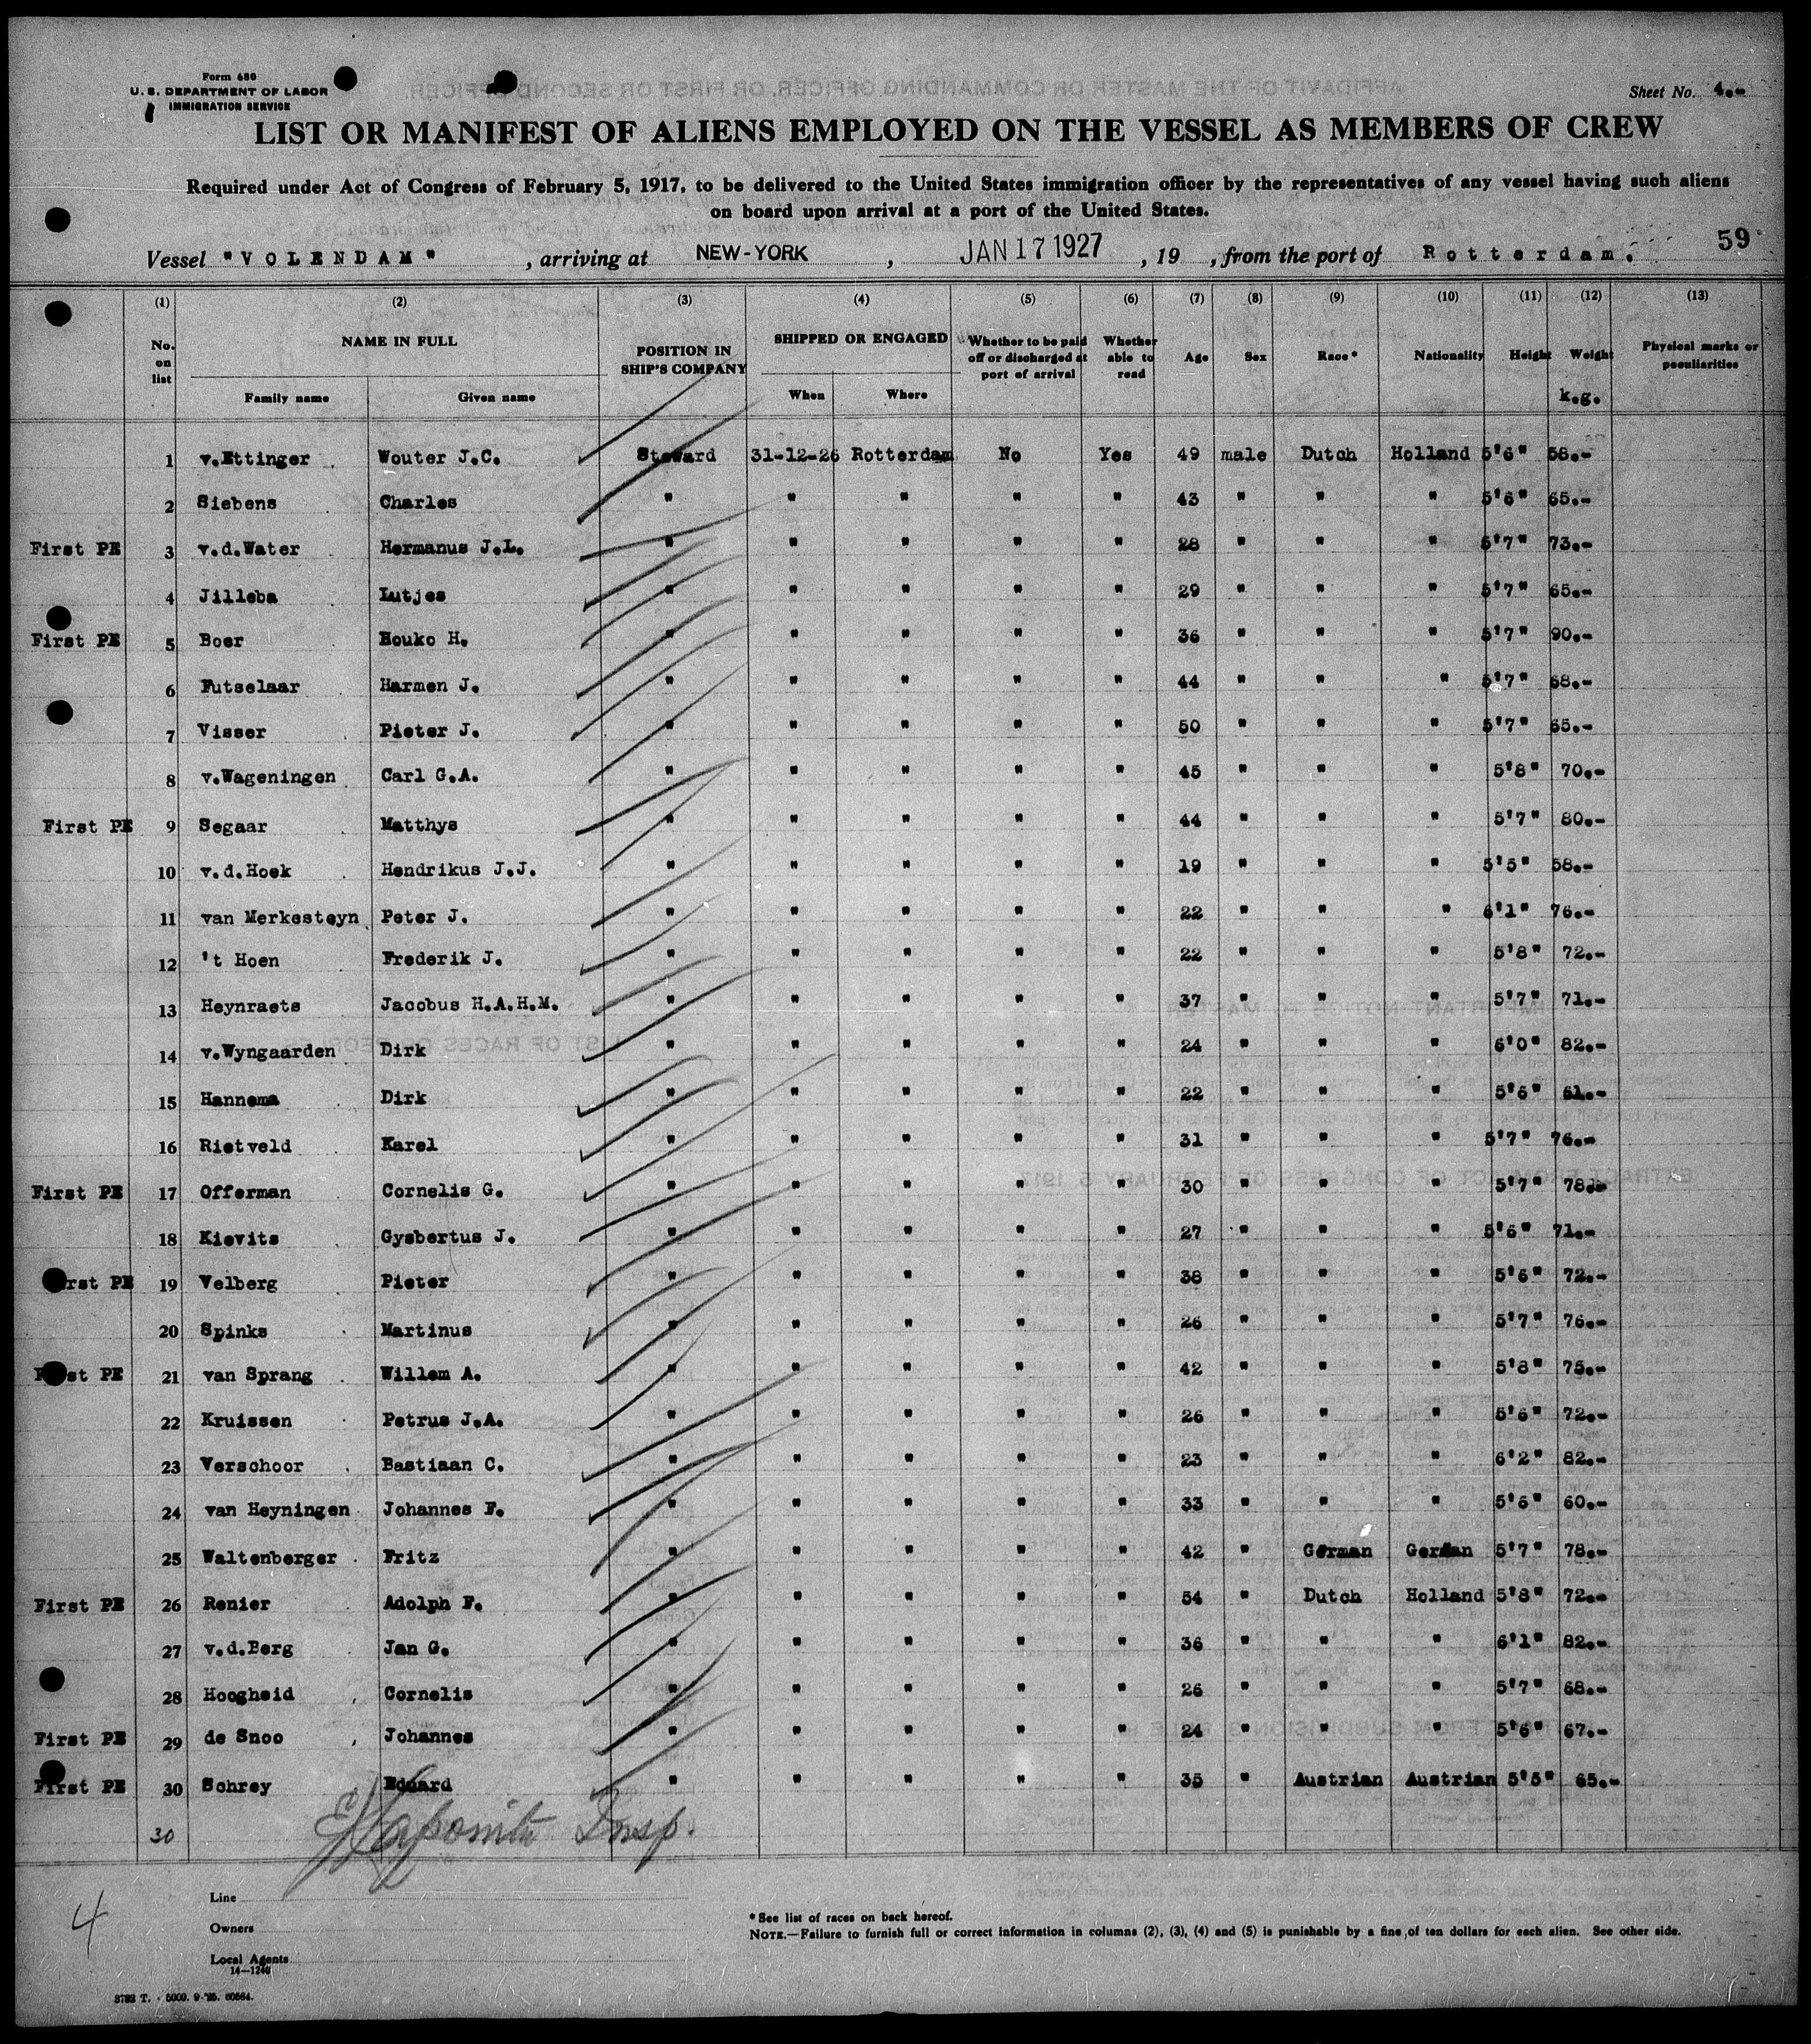 Form 680
U. S. DEPARTMENT OF LABOR
IMMIGRATION SERVICE
Sheet No. 4.-
LIST OR MANIFEST OF ALIENS EMPLOYED ON THE VESSEL AS MEMBERS OF CREW
Required under Act of Congress of February 5, 1917, to be delivered to the United States immigration officer by the representatives of any vessel having such aliens
on board upon arrival at a port of the United States.
59
Vessel "VOLENDAM" , arriving at NEW-YORK , JAN 17 1927 , 19 , from the port of Rotterdam.
(1) (2) (3) (4) (5) (6) (7) (8) (9) (10) (11) (12) (13)
No. on list NAME IN FULL Family name Given name POSITION IN SHIP'S COMPANY SHIPPED OR ENGAGED When Where Whether to be paid off or discharged at port of arrival Whether able to read Age Sex Race* Nationality Height Weight k.g. Physical marks or peculiarities
1 v.Ettinger Wouter J.C. Steward 31-12-26 Rotterdam No Yes 49 male Dutch Holland 5'6" 58.-
2 Siebens Charles " " " " " 43 " " " 5'6" 65.-
First PE 3 v.d.Water Hermanus J.L. " " " " " 28 " " " 5'7" 73.-
4 Jilleba Lutjes " " " " " 29 " " " 5'7" 65.-
First PE 5 Boer Houko H. " " " " " 36 " " " 5'7" 90.-
6 Futselaar Harmen J. " " " " " 44 " " " 5'7" 68.-
7 Visser Pieter J. " " " " " 50 " " " 5'7" 65.-
8 v.Wageningen Carl G.A. " " " " " 45 " " " 5'8" 70.-
First PE 9 Segaar Matthys " " " " " 44 " " " 5'7" 80.-
10 v.d.Hoek Hendrikus J.J. " " " " " 19 " " " 5'5" 58.-
11 van Merkesteyn Peter J. " " " " " 22 " " " 6'1" 76.-
12 't Hoen Frederik J. " " " " " 22 " " " 5'8" 72.-
13 Heynraets Jacobus H.A.H.M. " " " " " 37 " " " 5'7" 71.-
14 v.Wyngaarden Dirk " " " " " 24 " " " 6'0" 82.-
15 Hannema Dirk " " " " " 22 " " " 5'6" 61.-
16 Rietveld Karel " " " " " 31 " " " 5'7" 76.-
First PE 17 Offerman Cornelis G. " " " " " 30 " " " 5'7" 78.-
18 Kievits Gysbertus J. " " " " " 27 " " " 5'6" 71.-
rst PE 19 Velberg Pieter " " " " " 38 " " " 5'6" 72.-
20 Spinks Martinus " " " " " 26 " " " 5'7" 76.-
F st PE 21 van Sprang Willem A. " " " " " 42 " " " 5'8" 75.-
22 Kruissen Petrus J.A. " " " " " 26 " " " 5'6" 72.-
23 Verschoor Bastiaan C. " " " " " 23 " " " 6'2" 82.-
24 van Heyningen Johannes F. " " " " " 33 " " " 5'6" 60.-
25 Waltenberger Fritz " " " " " 42 " German German 5'7" 78.-
First PE 26 Renier Adolph F. " " " " " 54 " Dutch Holland 5'8" 72.-
27 v.d.Berg Jan G. " " " " " 36 " " " 6'1" 82.-
28 Hoogheid Cornelis " " " " " 26 " " " 5'7" 68.-
First PE 29 de Snoo Johannes " " " " " 24 " " " 5'6" 67.-
First PE 30 Schrey Eduard " " " " " 35 " Austrian Austrian 5'5" 65.-
30 Insp.
4
Line
Owners
Local Agents
14—1240
* See list of races on back hereof.
NOTE.—Failure to furnish full or correct information in columns (2), (3), (4) and (5) is punishable by a fine of ten dollars for each alien. See other side.